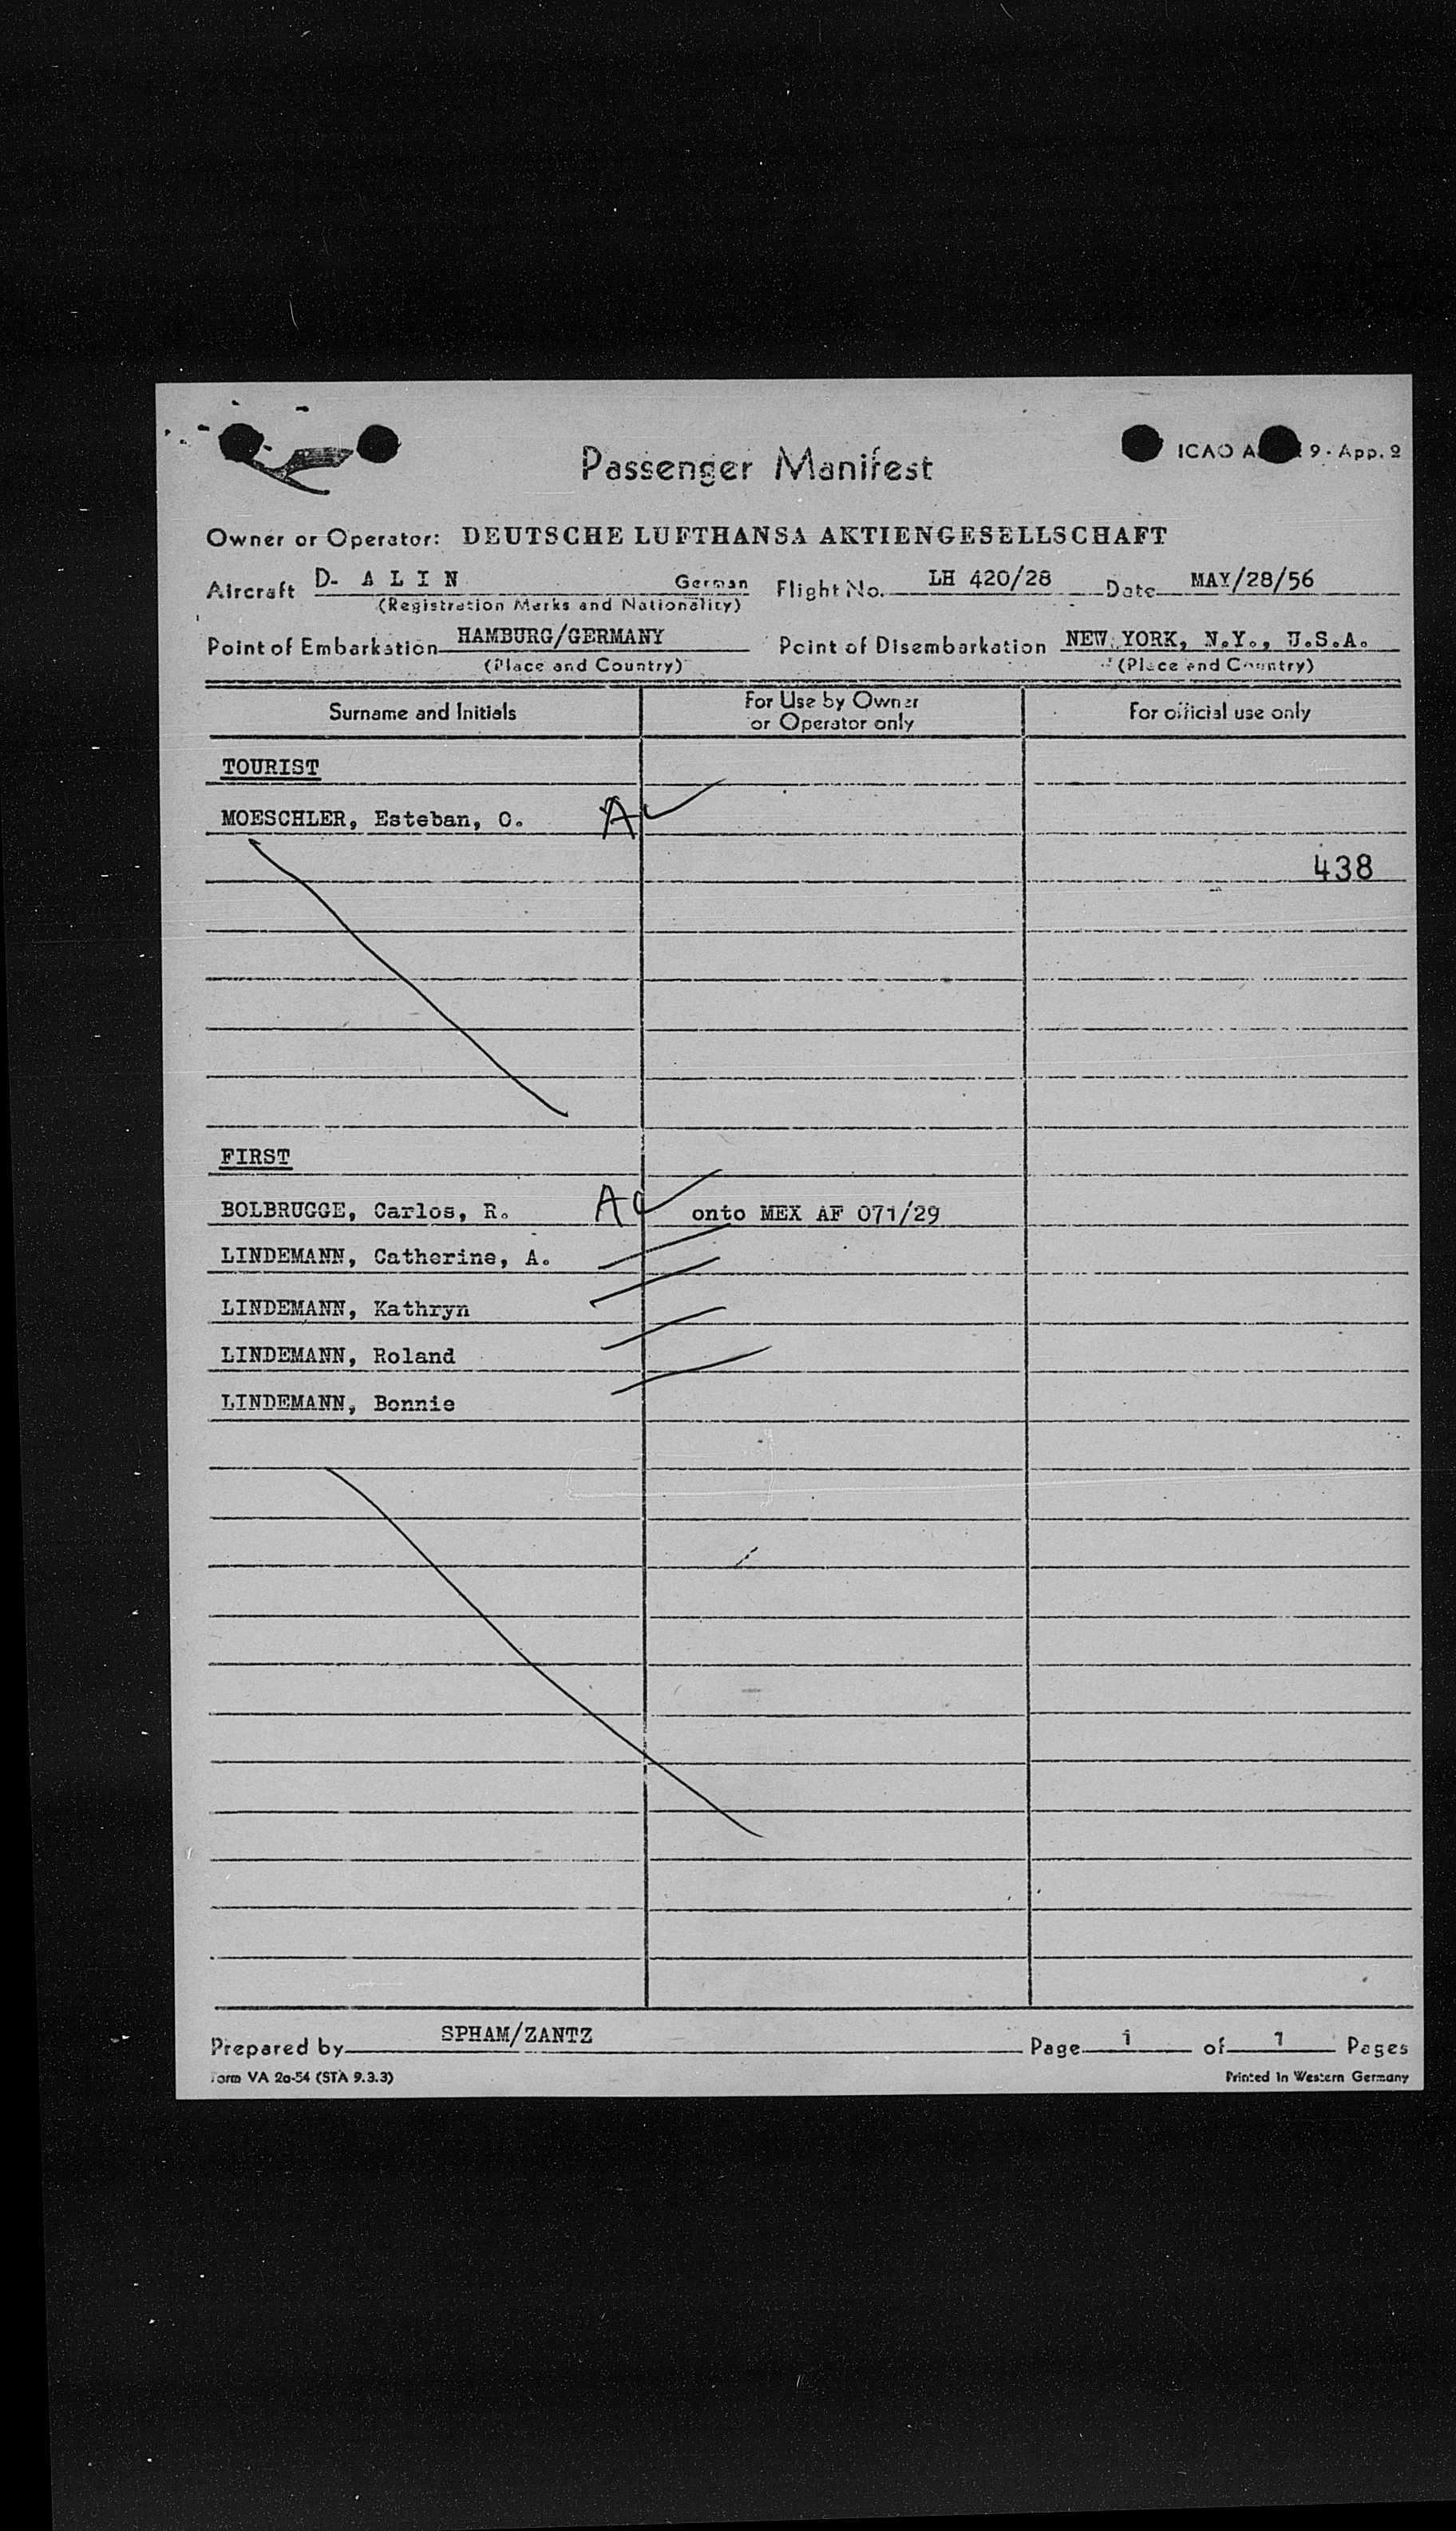 Passenger Manifest
ICAO A 9 - App. 2
Owner or Operator: DEUTSCHE LUFTHANSA AKTIENGESELLSCHAFT
Aircraft D- A L I N German Flight No. LH 420/28 Date MAY/28/56
(Registration Marks and Nationality)
Point of Embarkation HAMBURG/GERMANY Point of Disembarkation NEW YORK, N.Y., U.S.A.
(Place and Country) (Place and Country)
Surname and Initials For Use by Owner or Operator only For official use only
TOURIST
MOESCHLER, Esteban, O. A
438
FIRST
BOLBRUGGE, Carlos, R. A onto MEX AF 071/29
LINDEMANN, Catherine, A.
LINDEMANN, Kathryn
LINDEMANN, Roland
LINDEMANN, Bonnie
Prepared by SPHAM/ZANTZ Page 1 of 1 Pages
Form VA 2a-54 (STA 9.3.3) Printed in Western Germany